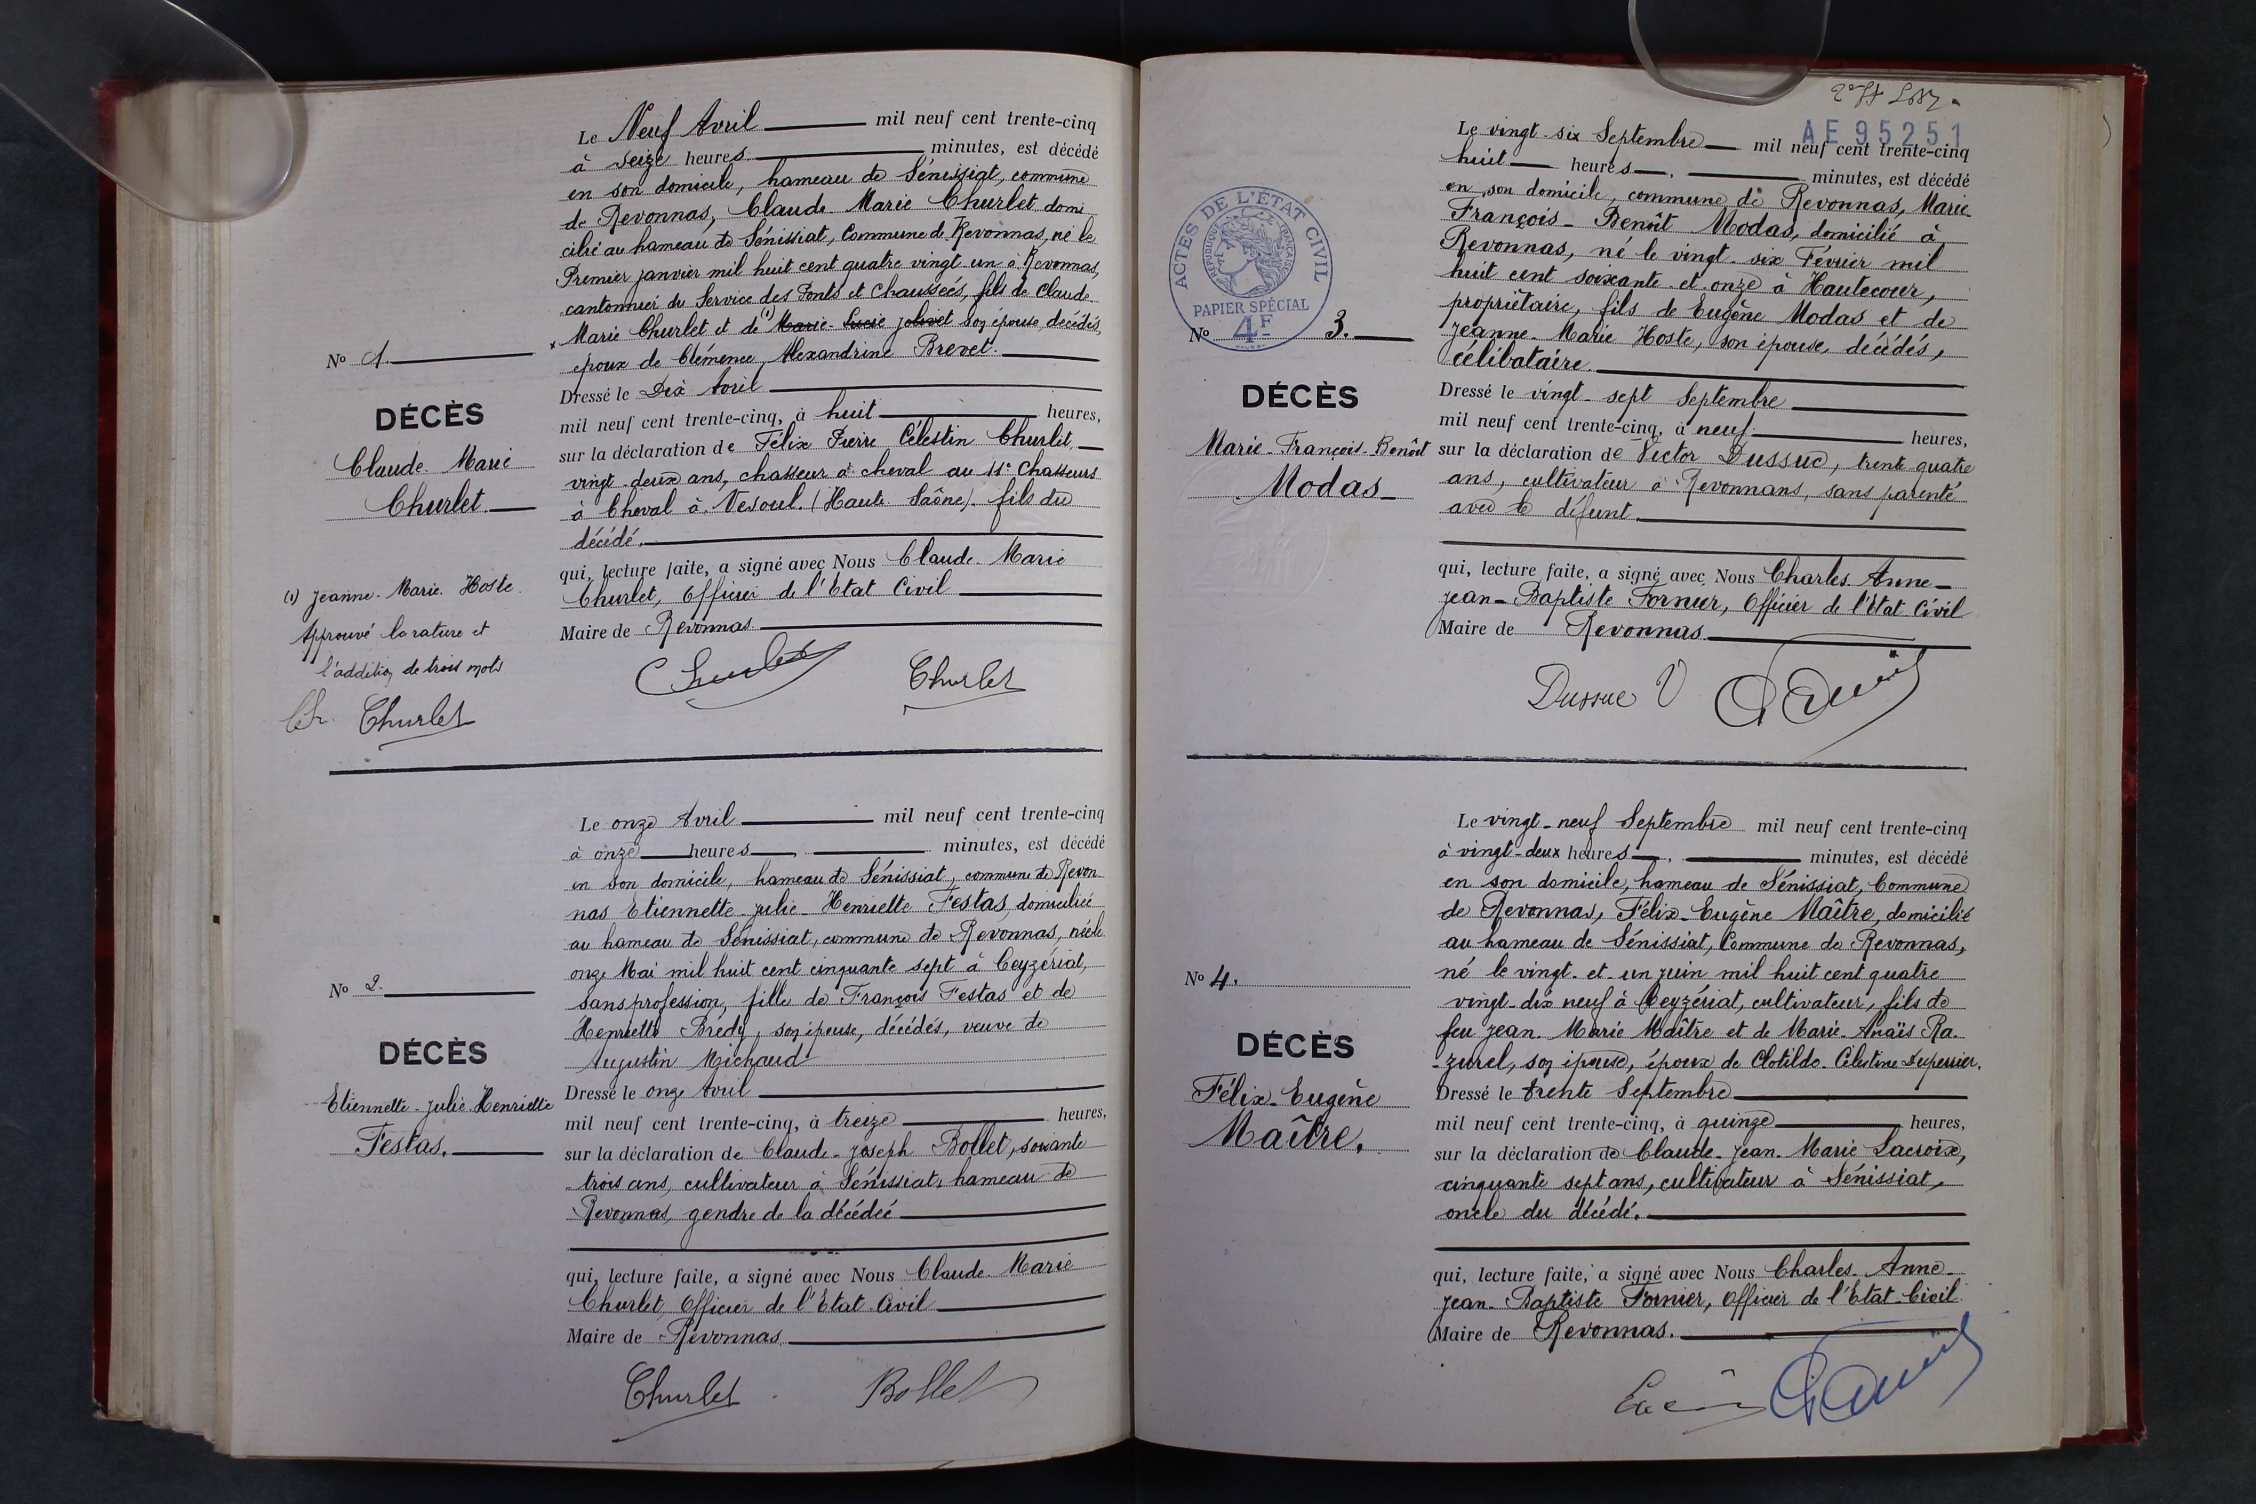 Le Neuf Avril mil neuf cent trente-cinq
à seize heures minutes, est décédé
en son domicile, hameau de Sénissiat, commune
de Revonnas, Claude Marie Churlet domi
cilié au hameau de Sénissiat, Commune de Revonnas, né le
Premier janvier mil huit cent quatre vingt un à Revonnas,
cantonnier du Service des Ponts et Chaussées, fils de Claude
Marie Churlet et de (1) Marie-Lucie Jolivet son épouse décédés,
époux de Clémence Alexandrine Brevet.
Dressé le Dix Avril
mil neuf cent trente-cinq, à huit heures,
sur la déclaration de Félix Pierre Célestin Churlet,
vingt-deux ans, chasseur à cheval au 11e Chasseurs
à Cheval à Vesoul. (Haute Saône). fils du
décédé.
qui, lecture faite, a signé avec Nous Claude Marie
Churlet, Officier de l'Etat Civil
Maire de Revonnas
Churlet
Churlet
No 1.
DÉCÈS
Claude Marie
Churlet
(1) Jeanne-Marie Hoste.
Approuvé la rature et
l'addition de trois mots
Ch. Churlet
Le onze Avril mil neuf cent trente-cinq
à onze heures, minutes, est décédé
en son domicile, hameau de Sénissiat, commune de Revon
nas Etiennette-Julie-Henriette Festas, domiciliée
au hameau de Sénissiat, commune de Revonnas, née le
onze Mai mil huit cent cinquante sept à Ceyzériat,
sans profession, fille de François Festas et de
Henriette Brédy, son épouse, décédés, veuve de
Augustin Michaud
Dressé le onze Avril
mil neuf cent trente-cinq, à treize heures,
sur la déclaration de Claude-Joseph Bollet, soixante
trois ans, cultivateur à Sénissiat, hameau de
Revonnas, gendre de la décédée
qui, lecture faite, a signé avec Nous Claude-Marie
Churlet, Officier de l'Etat Civil
Maire de Revonnas
Churlet
Bollet
No 2.
DÉCÈS
Etiennette-Julie Henriette
Festas.
AE 95251
Le vingt-six Septembre mil neuf cent trente-cinq
huit heures, minutes, est décédé
en son domicile, commune de Revonnas, Marie-
François-Benoît Modas, domicilié à
Revonnas, né le vingt-six Février mil
huit cent soixante et onze à Hautecour,
propriétaire, fils de Eugène Modas et de
Jeanne-Marie Hoste, son épouse, décédés,
célibataire.
Dressé le vingt-sept Septembre
mil neuf cent trente-cinq, à neuf heures,
sur la déclaration de Victor Dussuc, trente quatre
ans, cultivateur à Revonnans, sans parenté
avec le défunt.
qui, lecture faite, a signé avec Nous Charles-Anne-
Jean-Baptiste Fornier, Officier de l'Etat Civil
Maire de Revonnas
Dussuc V
ACTES DE L'ÉTAT CIVIL
RÉPUBLIQUE FRANÇAISE
PAPIER SPÉCIAL
4F
No 3.
DÉCÈS
Marie-François-Benoît
Modas
Le vingt-neuf Septembre mil neuf cent trente-cinq
à vingt-deux heures, minutes, est décédé
en son domicile, hameau de Sénissiat, Commune
de Revonnas, Félix-Eugène Maître, domicilié
au hameau de Sénissiat, Commune de Revonnas,
né le vingt-et-un juin mil huit cent quatre
vingt-dix neuf à Ceyzériat, cultivateur, fils de
feu Jean-Marie Maître et de Marie-Anaïs Ra-
-zurel, son épouse, époux de Clotilde-Célestine Duperrier.
Dressé le trente Septembre
mil neuf cent trente-cinq, à quinze heures,
sur la déclaration de Claude-Jean-Marie Lacroix,
cinquante sept ans, cultivateur à Sénissiat,
oncle du décédé.
qui, lecture faite, a signé avec Nous Charles-Anne-
Jean-Baptiste Fornier, Officier de l'Etat-Civil
Maire de Revonnas.
No 4.
DÉCÈS
Félix-Eugène
Maître.